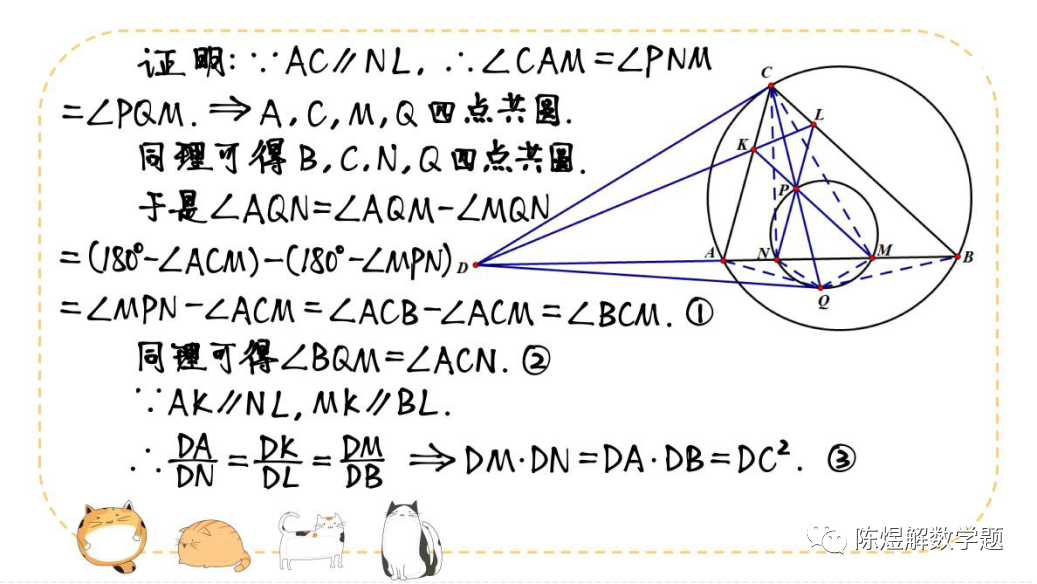 证明:∵AC∥NL,∴∠CAM=∠PNM
=∠PQM.⇒A,C,M,Q四点共圆.
同理可得B,C,N,Q四点共圆.
于是∠AQN=∠AQM-∠MQN
=(180°-∠ACM)-(180°-∠MPN)
=∠MPN-∠ACM=∠ACB-∠ACM=∠BCM.①
同理可得∠BQM=∠ACN.②
∵AK∥NL,MK∥BL.
∴DA/DN=DK/DL=DM/DB⇒DM·DN=DA·DB=DC².③
C
L
K
P
D
A
N
M
B
Q
陈煜解数学题